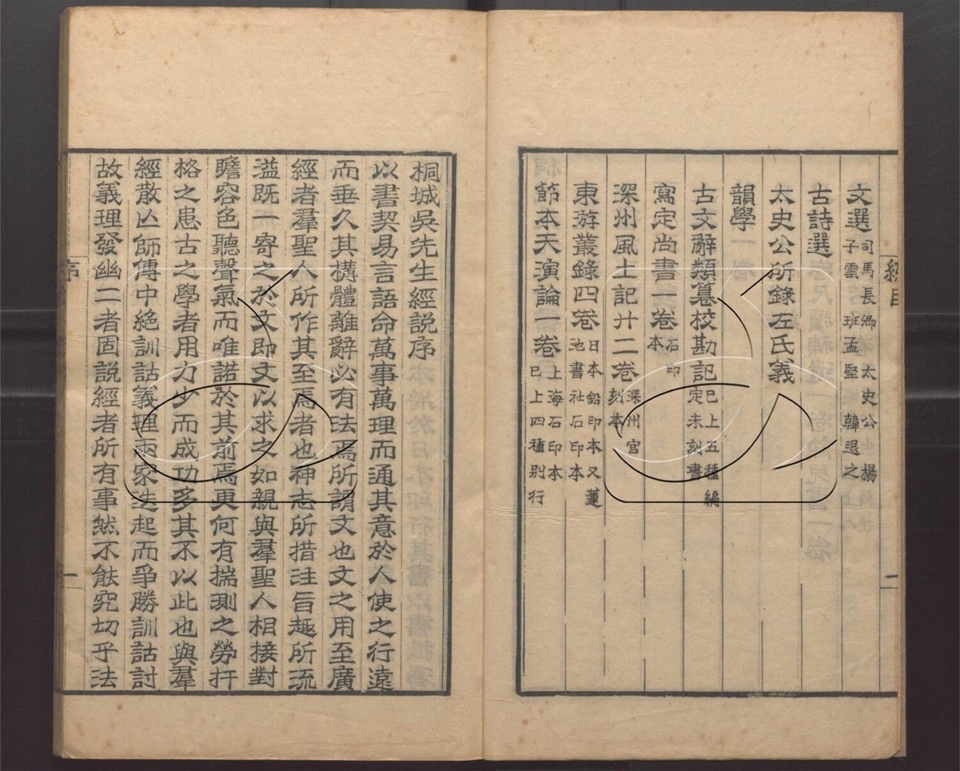 文選司馬長卿 太史公 楊子雲 班孟堅 韓退之
古詩選
太史公所錄左氏義
韻學
古文辭類纂校勘記已上五種編定未刻書
寫定尚書一卷石印本
深州風土記廿二卷深州官刻本
東游叢錄四卷日本鉛印本又蓮池書社石印本
節本天演論一卷上海石印本已上四種别行
二
桐城吳先生經說序
以書契易言語命萬事萬理而通其意於人使之行遠
而垂久其構體離辭必有法焉所謂文也文之用至廣
經者羣聖人所作其至焉者也神志所措注旨趣所流
溢既一寄之於文即文以求之如親與羣聖人相接對
瞻容色聽聲氣而唯諾於其前焉更何有揣測之勞扞
格之患古之學者用力少而成功多其不以此也與羣
經散亾師傳中絕訓詁義理兩家迭起而爭勝訓詁討
故義理發幽二者固說經者所有事然不能究切乎法
序
一